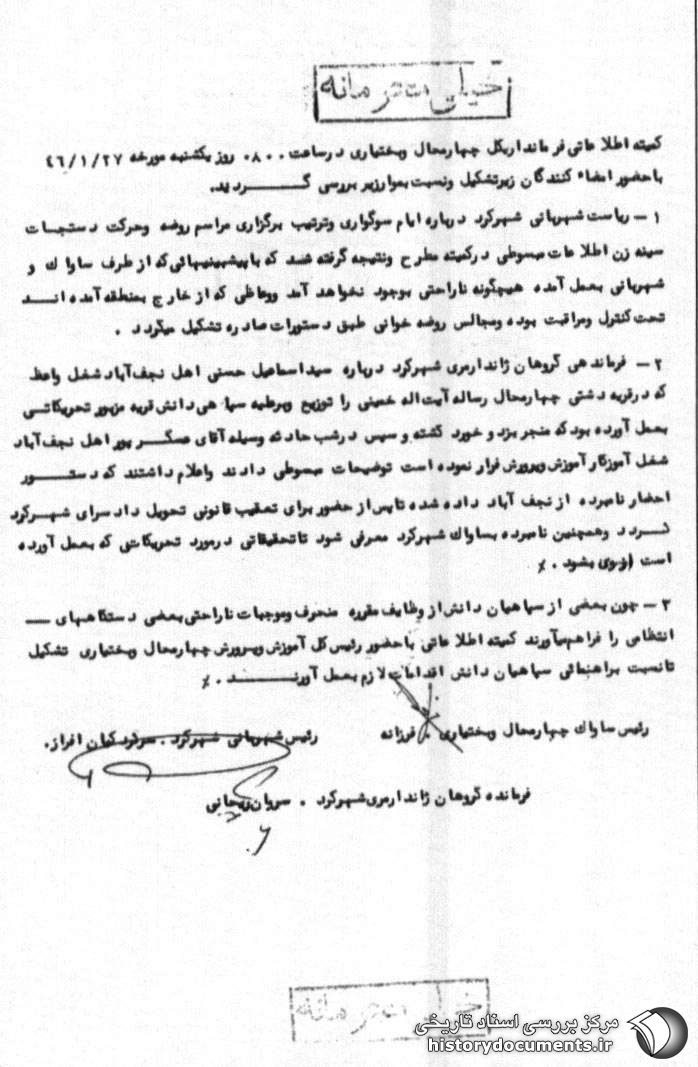 خیلی محرمانه
کمیته اطلاعاتی فرمانداریکل چهارمحال وبختیاری درساعت ۰۸۰۰ روز یکشنبه مورخه ۴۶/۱/۲۷
باحضور امضاء کنندگان زیرتشکیل ونسبت بموارزیر بررسی گردید.
۱ – ریاست شهربانی شهرکرد درباره ایام سوگواری وترتیب برگزاری مراسم روضه وحرکت دستجات
سینه زن اطلاعات مبسوطی درکمیته مطرح ونتیجه گرفته شد که باپیشبینیهائی که از طرف ساواک و
شهربانی بعمل آمده هیچگونه ناراحتی بوجود نخواهد آمد ووعاظی که از خارج بمنطقه آمده اند
تحت کنترل ومراقبت بوده ومجالس روضه خوانی طبق دستورات صادره تشکیل میگردد .
۲ – فرماندهی گروهان ژاندارمری شهرکرد درباره سیداسماعیل حسنی اهل نجف آباد شغل واعظ
که درقریه دشتی چهارمحال رساله آیت اله خمینی را توزیع وبرعلیه سپاهی دانش قریه مزبور تحریکاتی
بعمل آورده بود که منجر بزد و خورد گشته و سپس درشب حادثه وسیله آقای عسگرپور اهل نجف آباد
شغل آموزگار آموزش وپرورش فرار نموده است توضیحات مبسوطی دادند واعلام داشتند که دستور
احضار نامبرده از نجف آباد داده شده تاپس از حضور برای تعقیب قانونی تحویل دادسرای شهرکرد
گردد وهمچنین نامبرده بساواک شهرکرد معرفی شود تاتحقیقاتی درمورد تحریکاتی که بعمل آورده
است ازوی بشود . ٪
۳ – چون بعضی از سپاهیان دانش از وظایف مقرره منحرف وموجبات ناراحتی بعضی دستگاههای
انتظامی را فراهم میآورند کمیته اطلاعاتی باحضور رئیس کل آموزش وپرورش چهارمحال وبختیاری تشکیل
تانسبت براهنمائی سپاهیان دانش اقدامات لازم بعمل آورند . ٪
رئیس ساواک چهارمحال وبختیاری . فرزانه رئیس شهربانی شهرکرد . سرگرد کیان افراز.
فرمانده گروهان ژاندارمری شهرکرد . سروان روحانی
خیلی محرمانه
مرکز بررسی اسناد تاریخی
historydocuments.ir